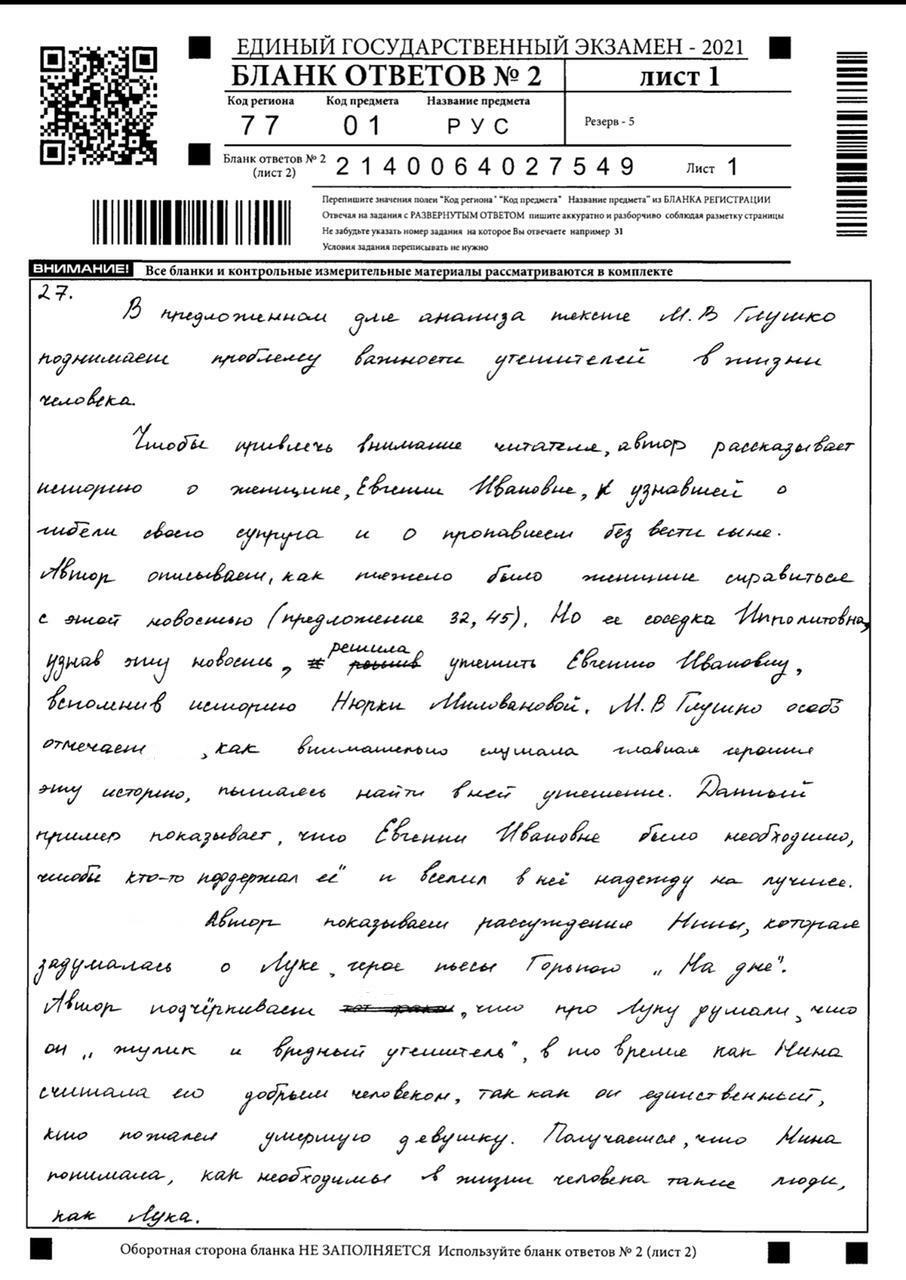 ЕДИНЫЙ ГОСУДАРСТВЕННЫЙ ЭКЗАМЕН - 2021
БЛАНК ОТВЕТОВ № 2
лист 1
Код региона Код предмета Название предмета
77 01 РУС
Резерв - 5
Бланк ответов № 2 (лист 2)
2140064027549
Лист 1
Перепишите значения полеи "Код региона" "Код предмета" Название предмета" из БЛАНКА РЕГИСТРАЦИИ
Отвечая на задания с РАЗВЕРНУТЫМ ОТВЕТОМ пишите аккуратно и разборчиво соблюдая разметку страницы
Не забудьте указать номер задания на которое Вы отвечаете например 31
Условия задания переписывать не нужно
ВНИМАНИЕ! Все бланки и контрольные измерительные материалы рассматриваются в комплекте
27.
В предложенном для анализа тексте М.В Глушко
поднимает проблему важности утешителей в жизни
человека.
Чтобы привлечь внимание читателя, автор рассказывает
историю о женщине, Евгении Ивановне, узнавшей о
гибели своего супруга и о пропавшем без вести сыне.
Автор описывает, как тяжело было женщине справиться
с этой новостью (предложение 32, 45). Но ее соседка Ипполитовна,
узнав эту новость, решила утешить Евгению Ивановну,
вспомнив историю Нюрки Миловановой. М.В Глушко особо
отмечает , как внимательно слушала главная героиня
эту историю, пытаясь найти в ней утешение. Данный
пример показывает, что Евгении Ивановне было необходимо,
чтобы кто-то поддержал её и вселил в неё надежду на лучшее.
Автор показывает рассуждения Нины, которая
задумалась о Луке, герое пьесы Горького „На дне".
Автор подчёркивает , что про Луку думали, что
он „жулик и вредный утешитель", в то время как Нина
считала его добрым человеком, так как он единственный,
кто пожалел умершую девушку. Получается, что Нина
понимала, как необходимы в жизни человека такие люди,
как Лука.
Оборотная сторона бланка НЕ ЗАПОЛНЯЕТСЯ Используйте бланк ответов № 2 (лист 2)